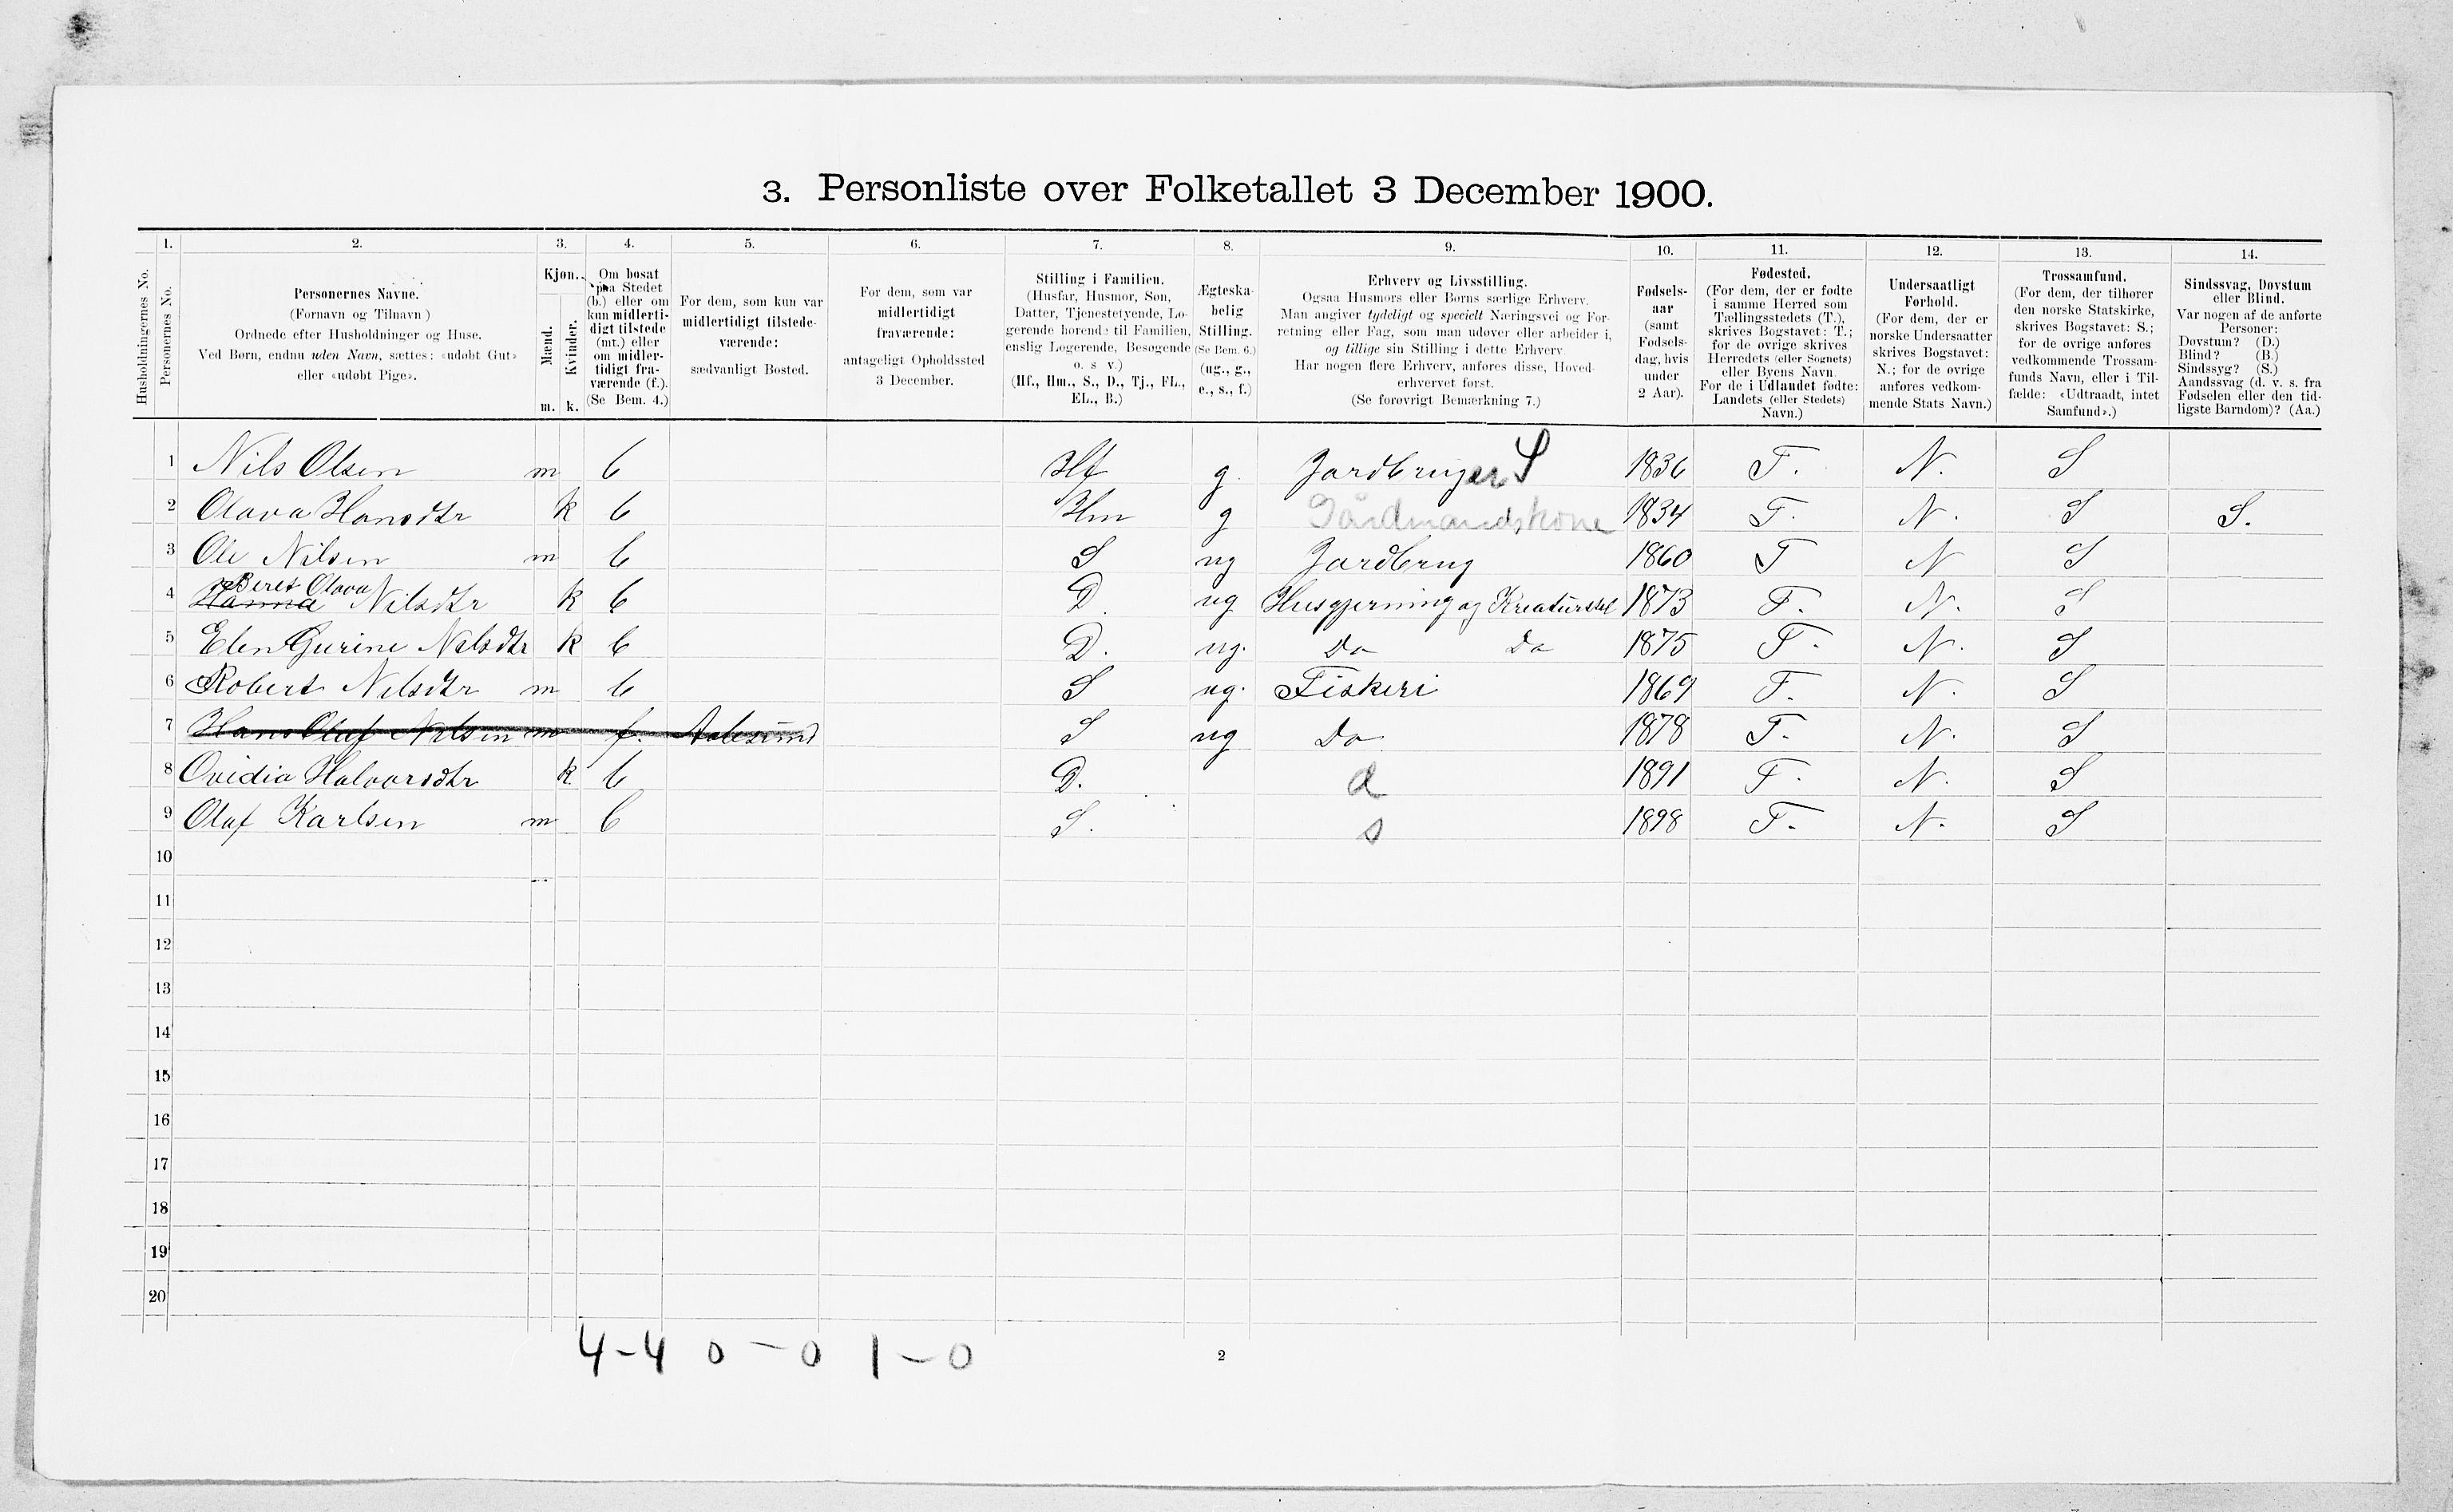 3. Personliste over Folketallet 3 December 1900.
1. 2. 3. 4. 5. 6. 7. 8. 9. 10. 11. 12. 13. 14.
Husholdningernes No.
Personernes No.
Personernes Navne.
(Fornavn og Tilnavn)
Ordnede efter Husholdninger og Huse.
Ved Børn, endnu uden Navn, sættes: «udøbt Gut»
eller «udøbt Pige».
Kjøn.
Mænd.
Kvinder.
m. k.
Om bosat
paa Stedet
(b.) eller om
kun midlerti-
digt tilstede
(mt.) eller
om midler-
tidigt fra-
værende (f.).
(Se Bem. 4.)
For dem, som kun var
midlertidigt tilstede-
værende:
sædvanligt Bosted.
For dem, som var
midlertidigt
fraværende:
antageligt Opholdssted
3 December.
Stilling i Familien.
(Husfar, Husmor, Søn,
Datter, Tjenestetyende, Lo-
gerende hørende til Familien,
enslig Logerende, Besøgende
o. s v.)
(Hf., Hm., S., D., Tj., FL.,
EL., B.)
Ægteska-
belig
Stilling.
(Se Bem. 6.)
(ug., g.,
e., s., f.)
Erhverv og Livsstilling.
Ogsaa Husmors eller Børns særlige Erhverv.
Man angiver tydeligt og specielt Næringsvei og For-
retning eller Fag, som man udøver eller arbeider i,
og tillige sin Stilling i dette Erhverv.
Har nogen flere Erhverv, anføres disse, Hoved-
erhvervet først.
(Se forøvrigt Bemærkning 7.)
Fødsels-
aar
(samt
Fødsels-
dag, hvis
under
2 Aar).
Fødested.
(For dem, der er fødte
i samme Herred som
Tællingsstedets (T.),
skrives Bogstavet: T.;
for de øvrige skrives
Herredets (eller Sognets)
eller Byens Navn.
For de i Udlandet fødte:
Landets (eller Stedets)
Navn.)
Undersaatligt
Forhold.
(For dem, der er
norske Undersaatter
skrives Bogstavet:
N.; for de øvrige
anføres vedkom-
mende Stats Navn.)
Trossamfund.
(For dem, der tilhører
den norske Statskirke,
skrives Bogstavet: S.;
for de øvrige anføres
vedkommende Trossam-
funds Navn, eller i Til-
fælde: «Udtraadt, intet
Samfund».)
Sindssvag, Døvstum
eller Blind.
Var nogen af de anførte
Personer:
Døvstum? (D.)
Blind? (B.)
Sindssyg? (S.)
Aandssvag (d. v. s. fra
Fødselen eller den tid-
ligste Barndom)? (Aa.)
1 Nils Olsen m b Hf g. Jordbruger S 1836 T. N. S
2 Olava Hansdtr k b Hm g Gårdmandskone 1834 T. N. S S.
3 Ole Nilsen m b S ug Jordbrug 1860 T N S
Beret Olava
4 Hanna Nilsdtr k b D. ug Husgjerning og Kreaturstel 1873 T. N. S
5 Elen Gurine Nilsdtr k b D. ug. Do Do 1875 T. N. S
6 Robert Nilsdtr m b S ug. Fiskeri 1869 T. N. S
7 Hans Olaf Nilsen m f. Aalesund S ug Do 1878 T. N. S
8 Ovidia Halvorsdtr k. b D. d 1891 T. N. S
9 Olaf Karlsen m b S. s 1898 T. N. S
10
11
12
13
14
15
16
17
18
19
20
4-4 0-0 1-0
2